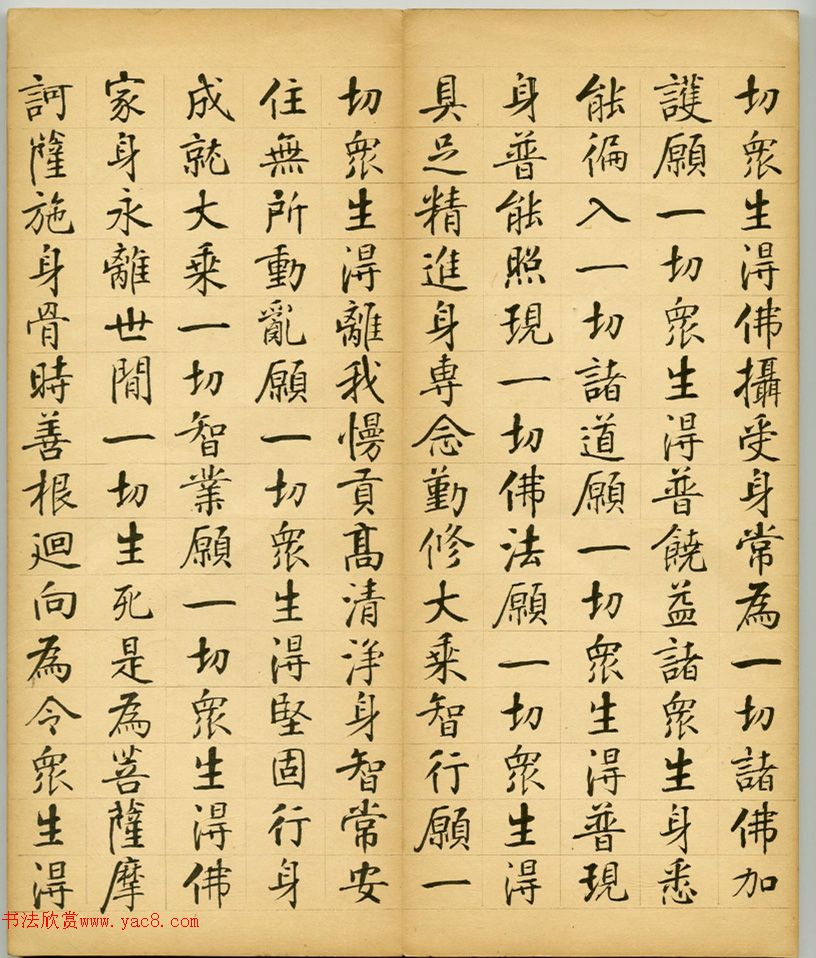 切衆生得佛攝受身常為一切諸佛加
護願一切衆生得普饒益諸衆生身悉
能徧入一切諸道願一切衆生得普現
身普能照現一切佛法願一切衆生得
具足精進身專念勤修大乘智行願一
切衆生得離我慢貢高清淨身智常安
住無所動亂願一切衆生得堅固行身
成就大乘一切智業願一切衆生得佛
家身永離世間一切生死是為菩薩摩
訶薩施身骨時善根迴向為令衆生得
书法欣赏www.yac8.com